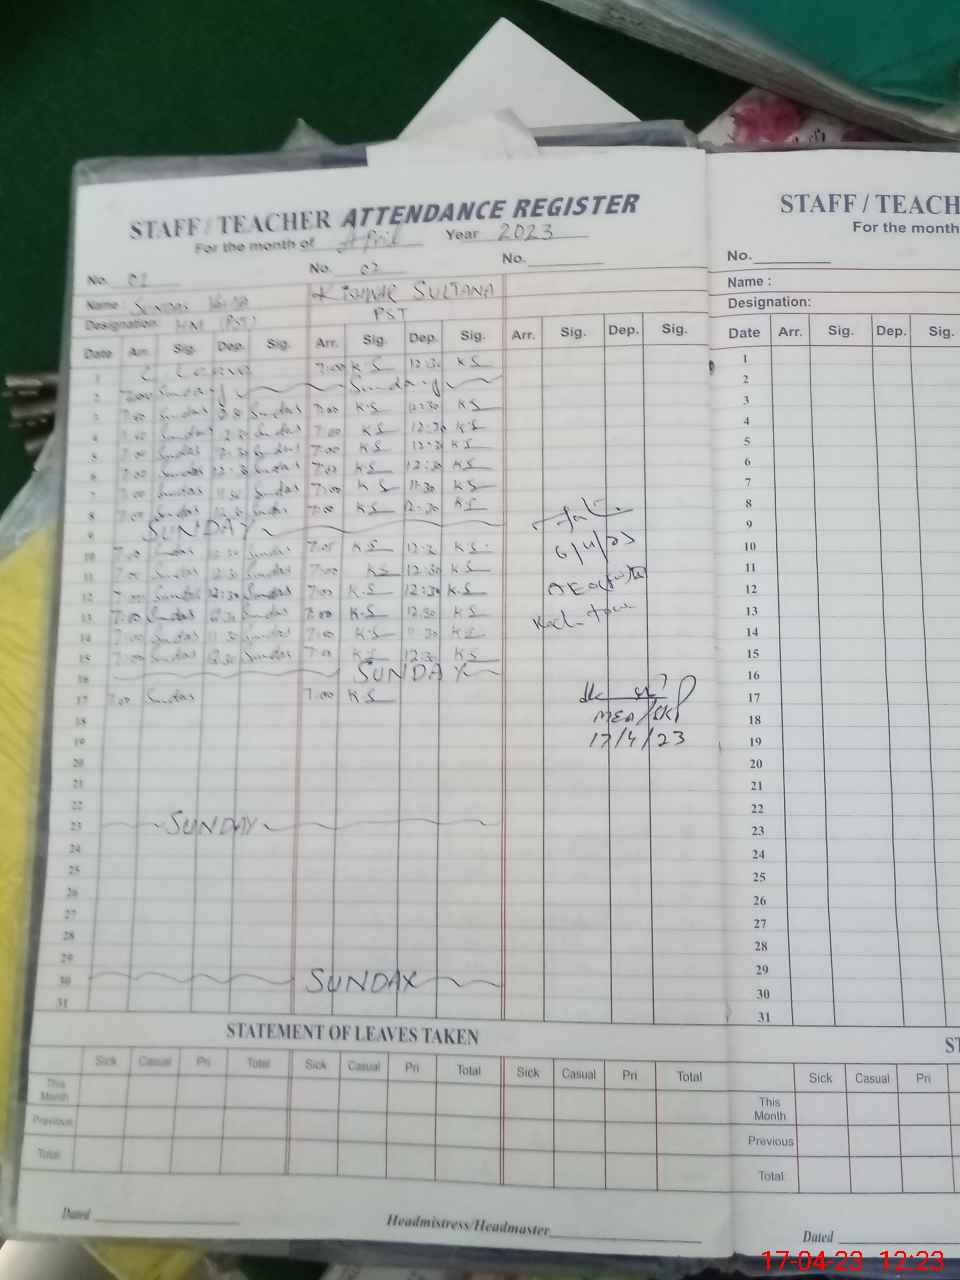 STAFF / TEACHER ATTENDANCE REGISTER
For the month of April Year 2023
No. 01 No. 02 No.
Name : Sundas KISHWAR SULTANA
Designation: HM (PST) PST
Date Arr. Sig. Dep. Sig. Arr. Sig. Dep. Sig. Arr. Sig. Dep. Sig.
1 C. Leave 7:00 K S 12:30 K S
2 Sunday Sunday
3 7:00 Sundas 12:30 Sundas 7:00 K.S 12:30 K S
4 7:00 Sundas 12:30 Sundas 7:00 K.S 12:30 K S
5 7:00 Sundas 12:30 Sundas 7:00 K S 12:30 K S
6 7:00 Sundas 12:30 Sundas 7:00 K S 12:30 K S
7 7:00 Sundas 11:30 Sundas 7:00 K S 11:30 K S
8 7:00 Sundas 12:30 Sundas 7:00 K S 12:30 K S
9 SUNDAY
10 7:00 Sundas 12:30 Sundas 7:05 K S 12:30 K S
11 7:00 Sundas 12:30 Sundas 7:00 K S 12:30 K S
12 7:00 Sundas 12:30 Sundas 7:00 K.S 12:30 K.S
13 7:00 Sundas 12:30 Sundas 7:00 K.S 12:30 K S
14 7:00 Sundas 11:30 Sundas 7:00 K.S 11:30 K S
15 7:00 Sundas 12:30 Sundas 7:00 K S 12:30 K S
16 SUNDAY
17 7:00 Sundas 7:00 K S
18
19
20
21
22
23 SUNDAY
24
25
26
27
28
29
30 SUNDAY
31
6/4/23
MEA/SKP
17/4/23
STATEMENT OF LEAVES TAKEN
Sick Casual Pri Total Sick Casual Pri Total Sick Casual Pri Total
This Month
Previous
Total
Dated Headmistress/Headmaster
STAFF / TEACH
For the month
No.
Name :
Designation:
Date Arr. Sig. Dep. Sig.
1
2
3
4
5
6
7
8
9
10
11
12
13
14
15
16
17
18
19
20
21
22
23
24
25
26
27
28
29
30
31
ST
Sick Casual Pri
This Month
Previous
Total
Dated
17-04-23 12:23